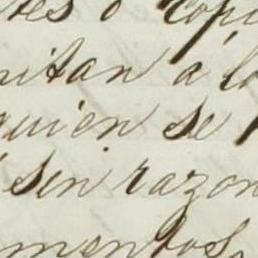 tes o copi
mitan a lo
quien se
sin razon
mentos